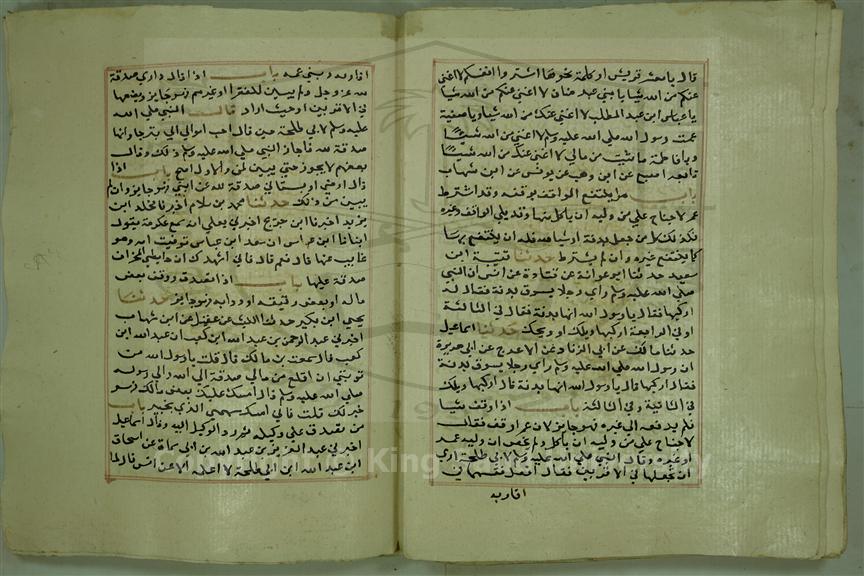 قال يا معشر قريش او كلمة نحوها اشتروا انفسكم لا اغني
عنكم من الله شيا يا بني عبد مناف لا اغني عنكم من الله شيا
يا عباس ابن عبد المطلب لا اغني عنك من الله شيا ويا صفية
عمت رسول الله صلي الله عليه وسلم لا اغني من الله شيئا
ويا فاطمة ما شيت من مالي لا اغني عنك من الله شيئا
تابعه اصبغ عن ابن وهب عن يونس عن ابن شهاب
باب هل ينتفع الواقف بوقفه وقد اشترط
عمر لا جناح علي من وليه ان ياكل منها وقد يلي الواقف وغيره
فكذلك كل من جعل بدنة او شيا لله فله ان ينتفع بها
كما ينتفع غيره وان لم يشترط حدثنا قتيبة ابن
سعيد حدثنا ابو عوانة عن قتادة عن انس ان النبي
صلي الله عليه وسلم راي رجلا يسوق بدنة فقال له
اركبها فقال يا رسول الله انها بدنة فقال في الثالثة
او في الرابعة اركبها ويلك او ويحك حدثنا اسماعيل
حدثنا مالك عن ابي الزناد عن الاعرج عن ابي هريرة
ان رسول الله صلي الله عليه وسلم راي رجلا يسوق بدنة
فقال اركبها قال يا رسول الله انها بدنة قال اركبها ويلك
في الثانية وفي الثالثة باب اذا وقف شيا
فلم يدفعه الي غيره فهو جايز لان عمر اوقف فقال
لا جناح علي من وليه ان ياكل ولم يخص ان وليه عمر
او غيره وقال النبي صلي الله عليه وسلم لابي طلحة اري
ان تجعلها في الاقربين فقال افعل فقسمها في
اقاربه
اقاربه وبني عمه باب اذا قال داري صدقة
لله عز وجل ولم يبين للفقرا او غيرهم فهو جايز ويضعها
في الاقربين او حيث اراد قال النبي صلي الله
عليه وسلم لابي طلحة حين قال احب اموالي الي بيرحا وانها
صدقة لله فاجاز النبي صلي الله عليه وسلم ذلك وقال
بعضهم لا يجوز حتي يبين لمن والاول اصح باب اذا
قال ارضي او بستاني صدقة لله عن ابي فهو جايز وان لم
يبين من ذلك حدثنا محمد بن سلام اخبرنا مخلد ابن
يزيد اخبرنا ابن جريج اخبرني يعلي انه سمع عكرمة يقول
انبانا ابن عباس ان سعد ابن عباس توفيت امه وهو
غايب عنها قال نعم قال فاني اشهدك ان حايطي المخراف
صدقة عليها باب اذا تصدق ووقف بعض
ماله او بعض رقيقه او دوابه فهو جايز حدثنا
يحيي ابن بكير حدثنا الليث عن عقيل عن ابن شهاب
اخبرني عبد الرحمن بن عبد الله ابن كعب ان عبد الله ابن
كعب قال سمعت بن مالك قال قلت يا رسول الله من
توبتي ان اقلع من مالي صدقة الي الله والي رسوله
صلي الله عليه وسلم قال امسك عليك بعض مالك فهو
خير لك قلت فاني امسك سهمي الذي بخيبر باب
من تصدق علي وكيله ثم رد الوكيل اليه وقال اسماعيل
اخبرني عبد العزيز بن عبد الله بن ابي سلمة عن اسحاق
ابن عبد الله ابن ابي طلحة لا اعلمه الا عن انس قال لما
King